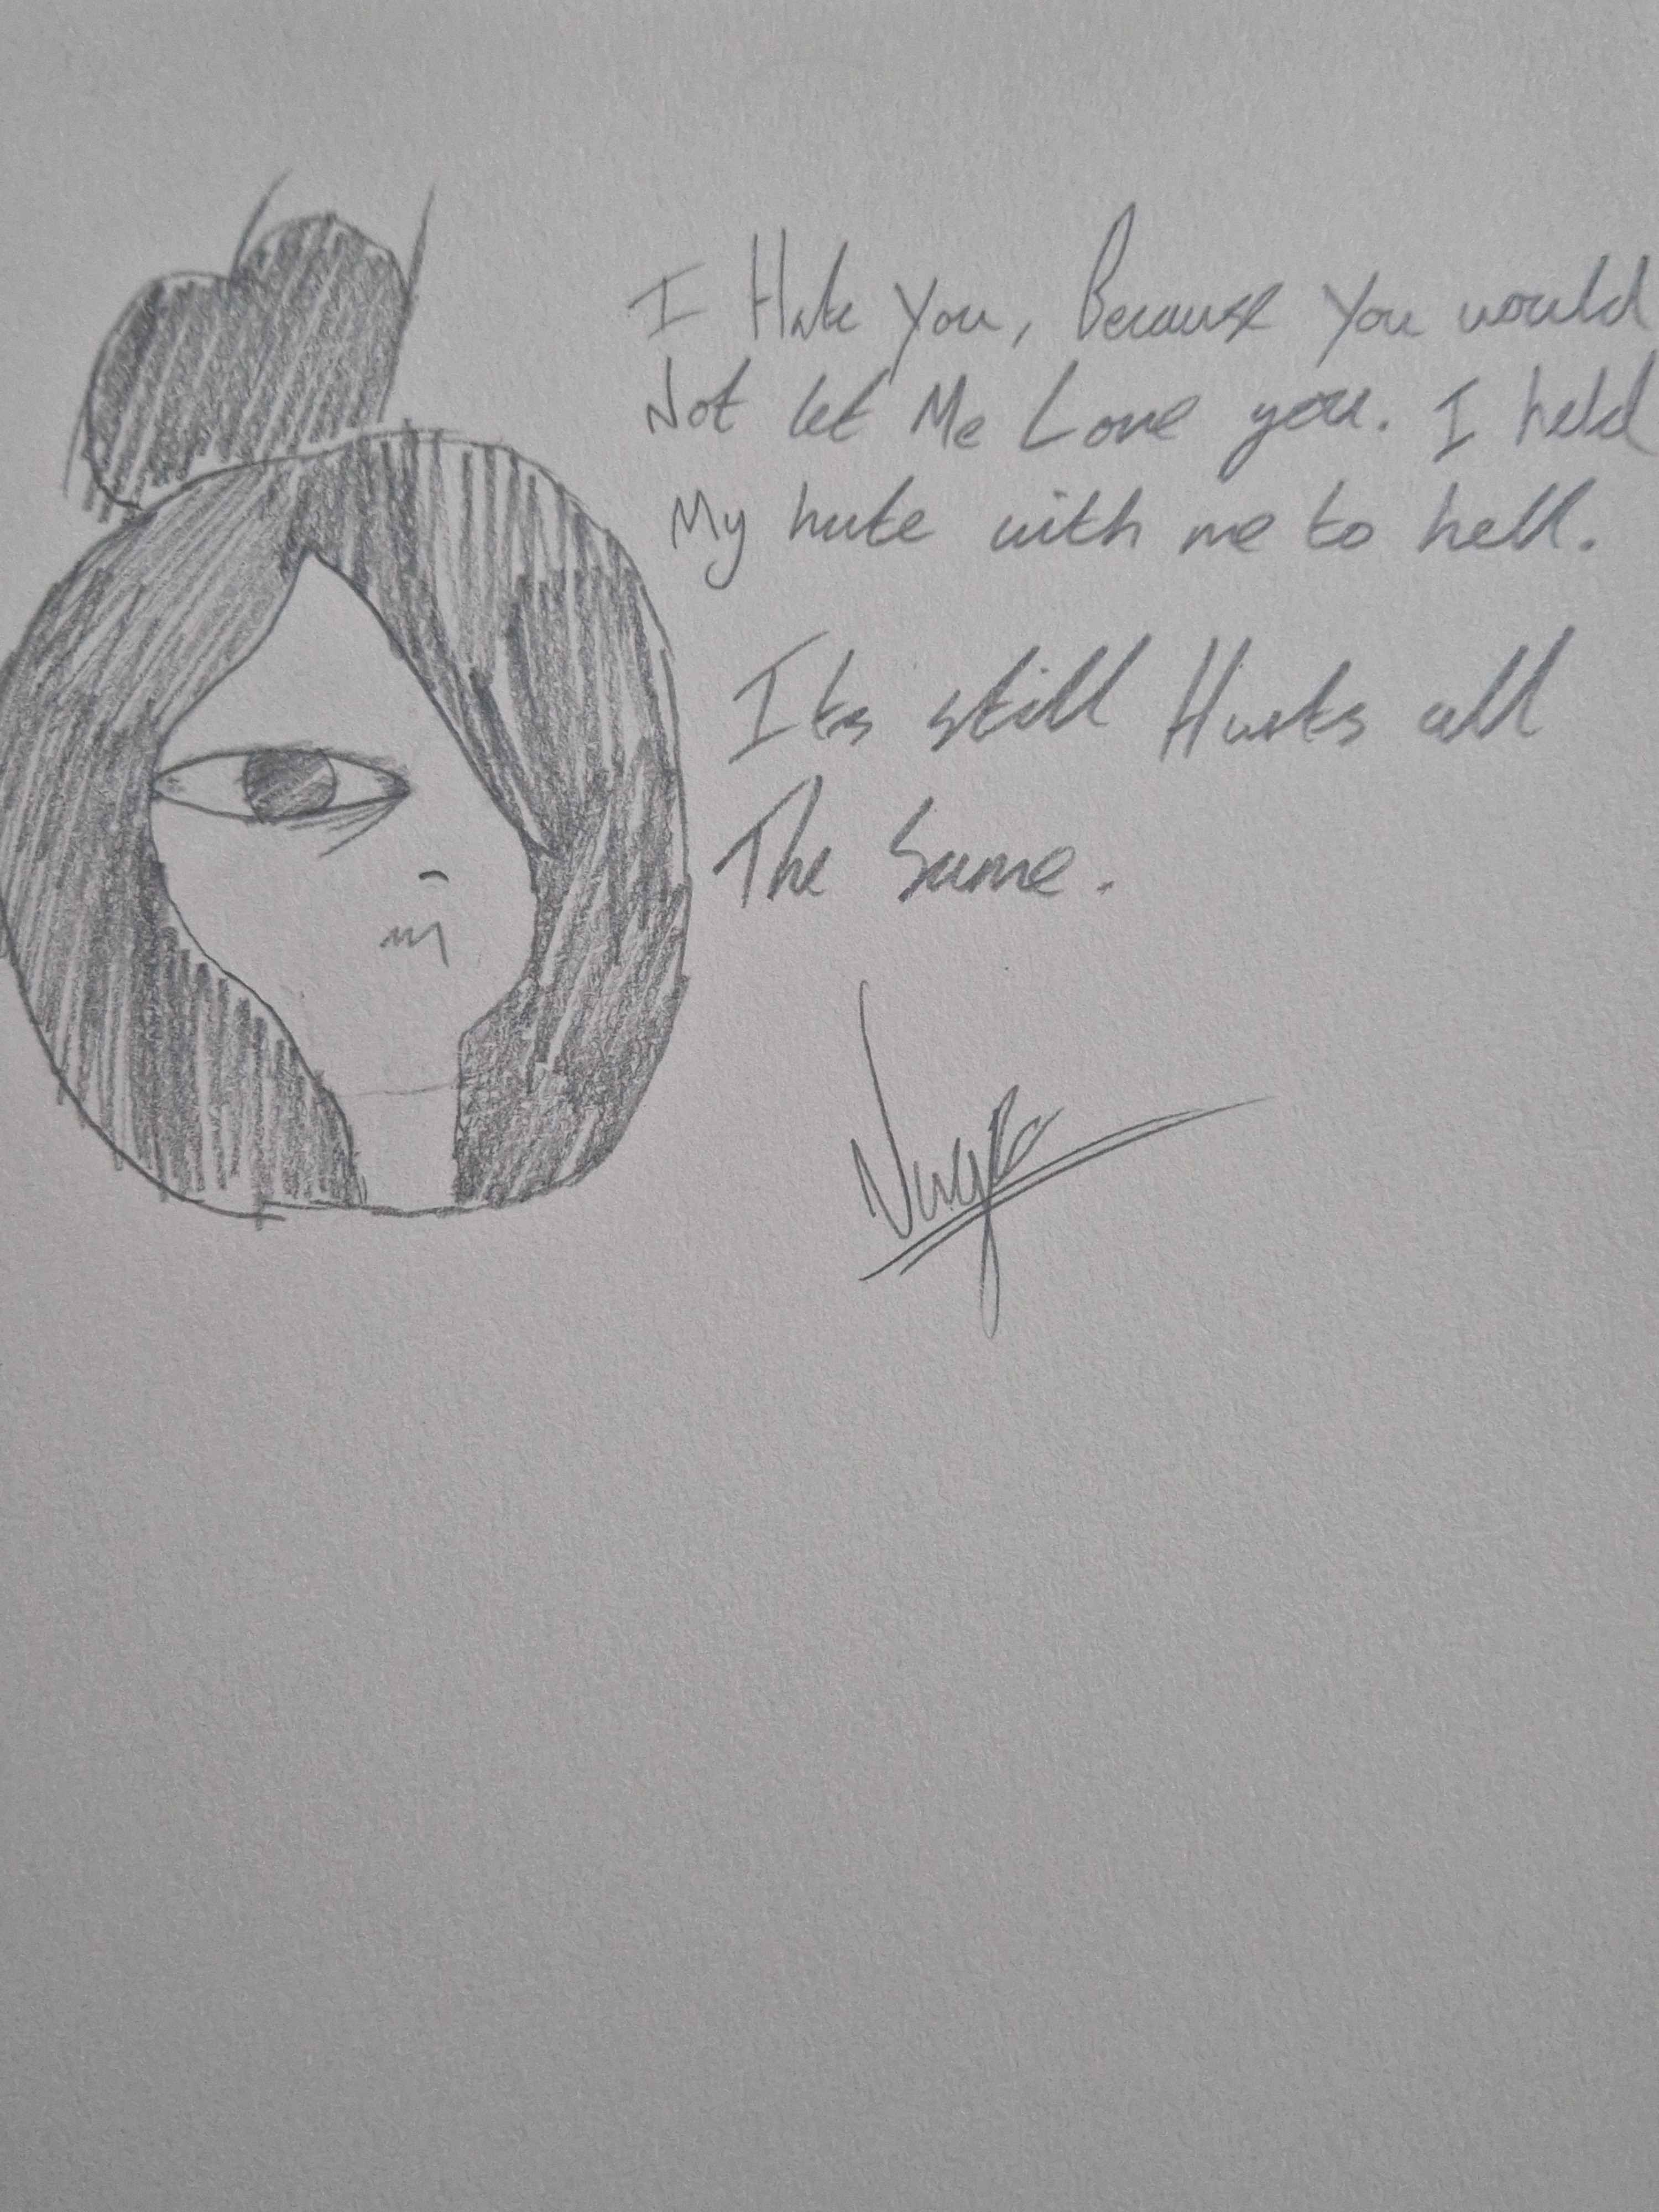 I Hate You, Because You would
Not let Me Love you. I held
My hate with me to hell.
Its still Hurts all
The Same.